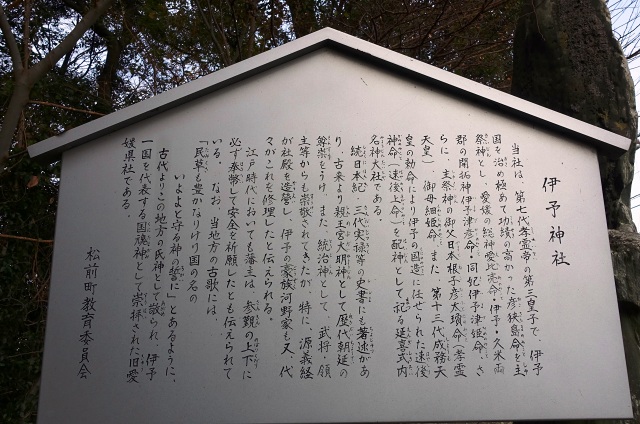 伊予神社
当社は、第七代孝霊帝の第三皇子で、伊予
国を治め極めて功績の高かった彦狭島命を主
祭神とし、愛媛の総神愛比売命・伊予・久米両
郡の開拓神伊予津彦命・同妃伊予津姫命、さ
らに、主祭神の御父日本根子彦太瓊命(孝霊
天皇)御母細姫命、また、第十三代成務天
皇の勅命により伊予の国造に任せられた速後
神命(速後上命)を配神として祀る延喜式内
名神大社である。
続日本紀・三代実録等の史書にも著述があ
り、古来より親王宮大明神として歴代朝廷の
尊崇をうけ、また、統治神として、武将、領
主等からも崇敬されてきたが、特に、源義経
が社殿を造営し、伊予の豪族河野家も又、代
々がこれを修理したと伝えられる。
江戸時代においても藩主は、参覲の上下に
必ず奉幣して安全を祈願したとも伝えられて
いる。なお、当地方の古歌には、
「民草も豊かなりけり国の名の
いよよと守る神の誓に」とあるように、
古代よりこの地方の氏神として敬られ、伊予
一国を代表する国魂神として崇拝された旧愛
媛県社である。
松前町教育委員会